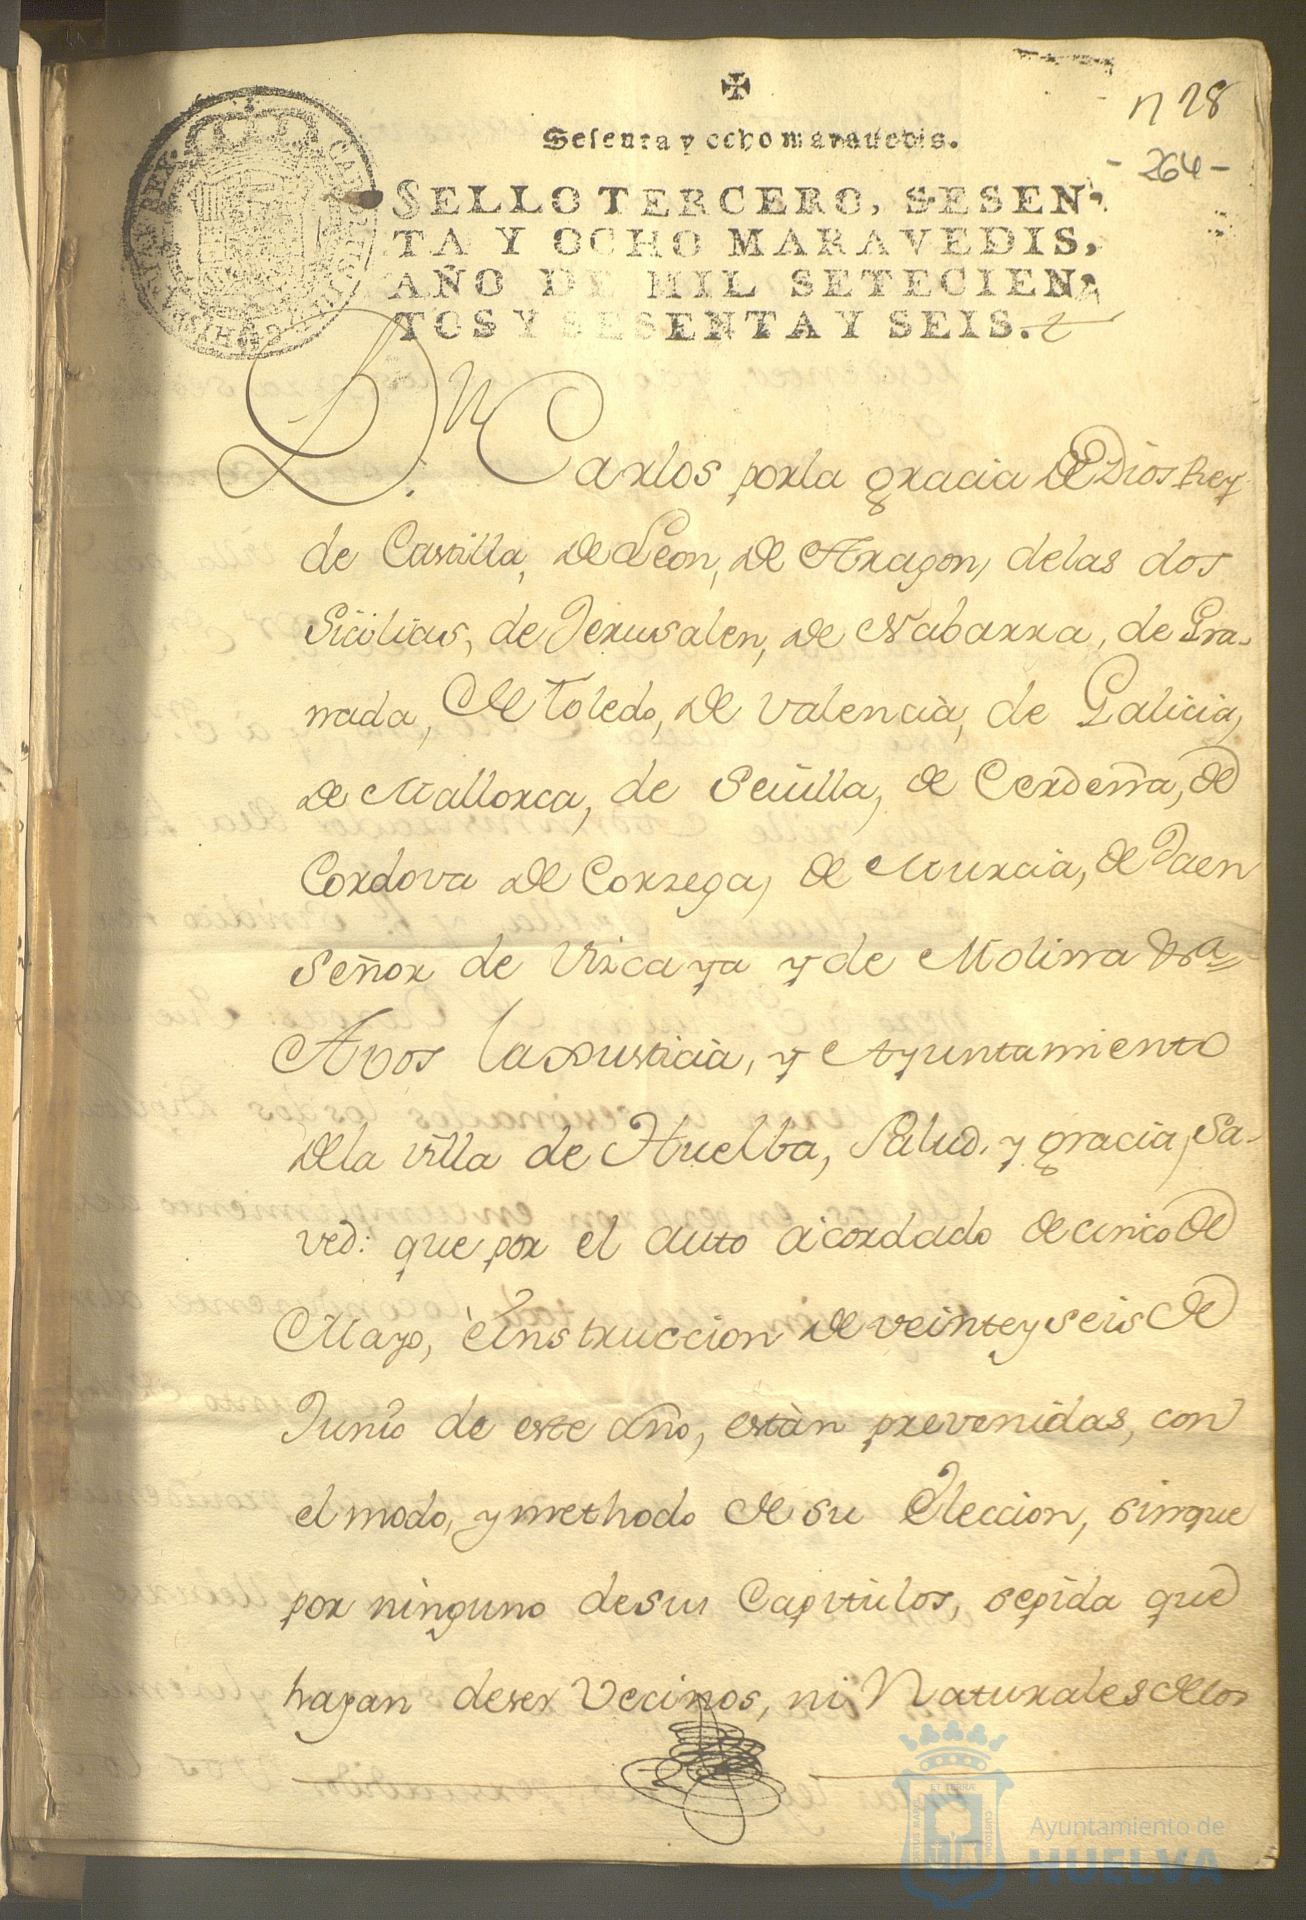 ✠
n 28
Sesenta y ocho maravedis.
- 264 -
SELLO TERCERO, SESEN-
TA Y OCHO MARAVEDIS,
AÑO DE MIL SETECIEN-
TOS Y SESENTA Y SEIS.
Dn Carlos porla gracia de Dios Rey
de Castilla, de Leon, de Aragon, delas dos
Sicilias, de Jerusalen, de Nabarra, de Gra-
nada, de Toledo, de Valencia, de Galicia,
de Mallorca, de Sevilla, de Cerdeña, de
Cordova de Corzega, de Murcia, de Jaen
Señor de Vizcaya y de Molina &a
A vos la Justicia, y Ayuntamiento
dela villa de Huelba, Salud, y gracia, Sa-
ved: que por el auto acordado de cinco de
Mayo, è Instruccion de veinte y seis de
Junio de este año, estàn prevenidas, con
el modo, y methodo de su Eleccion, sinque
por ninguno desus Capitulos, sepida que
hayan deser Vecinos, ni Naturales delos
ET TERRAE
CUSTODIA
Ayuntamiento de
HUELVA